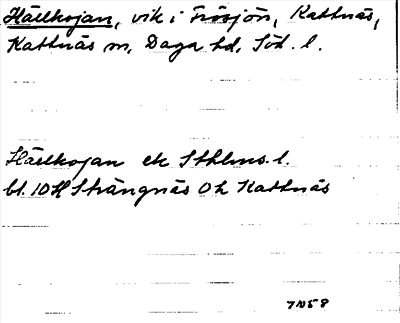 Hällkojan, vik i Frösjön, Kattnäs,
Kattnäs sn, Daga hd, Söd. l.
Hällkojan ek Sthlms. l.
bl. 10H Strängnäs 0h Kattnäs
7N58